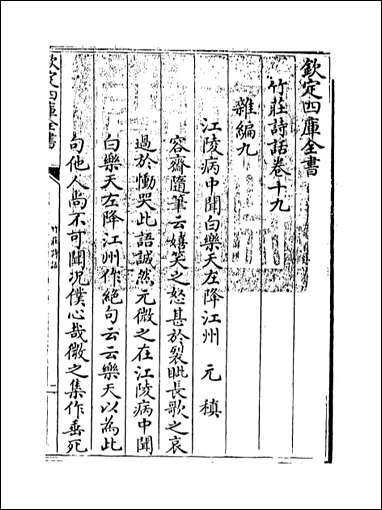 欽定四庫全書
竹莊詩話卷十九
雜編九
江陵病中聞白樂天左降江州　元稹
容齋隨筆云嬉笑之怒甚於裂眦長歌之哀
過於慟哭此語誠然元微之在江陵病中聞
白樂天左降江州作絶句云云樂天以為此
句他人尚不可聞況僕心哉微之集作垂死
欽定四庫全書
竹莊詩話